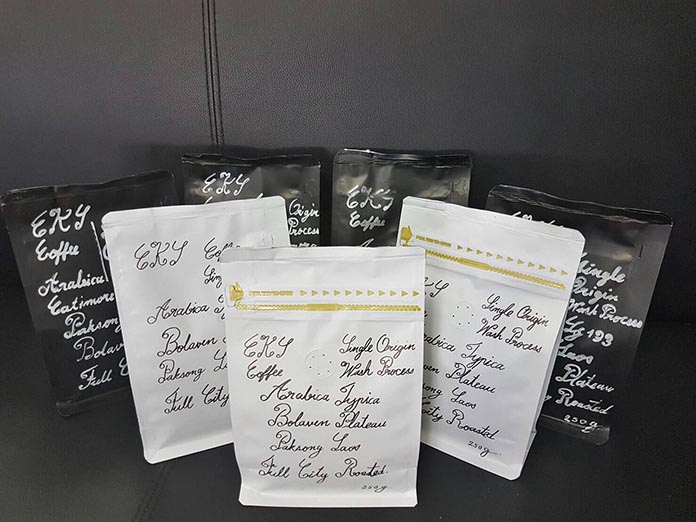 EKY
Coffee
Arabica
Catimore
Paksong
Full City
EKY
Origin
EKY
Coffee
EKY
Arabica
Bolaven
Paksong
Full City
EKY Single Origin
Coffee Wash Process
Arabica Typica
Bolaven Plateau
Paksong Laos
Full City Roasted.
250g.
Single Origin
Wash Process
Typica
Plateau
Laos
City Roasted
250g.
Single
Origin
Wash Process
Laos
Plateau
Roasted
250g